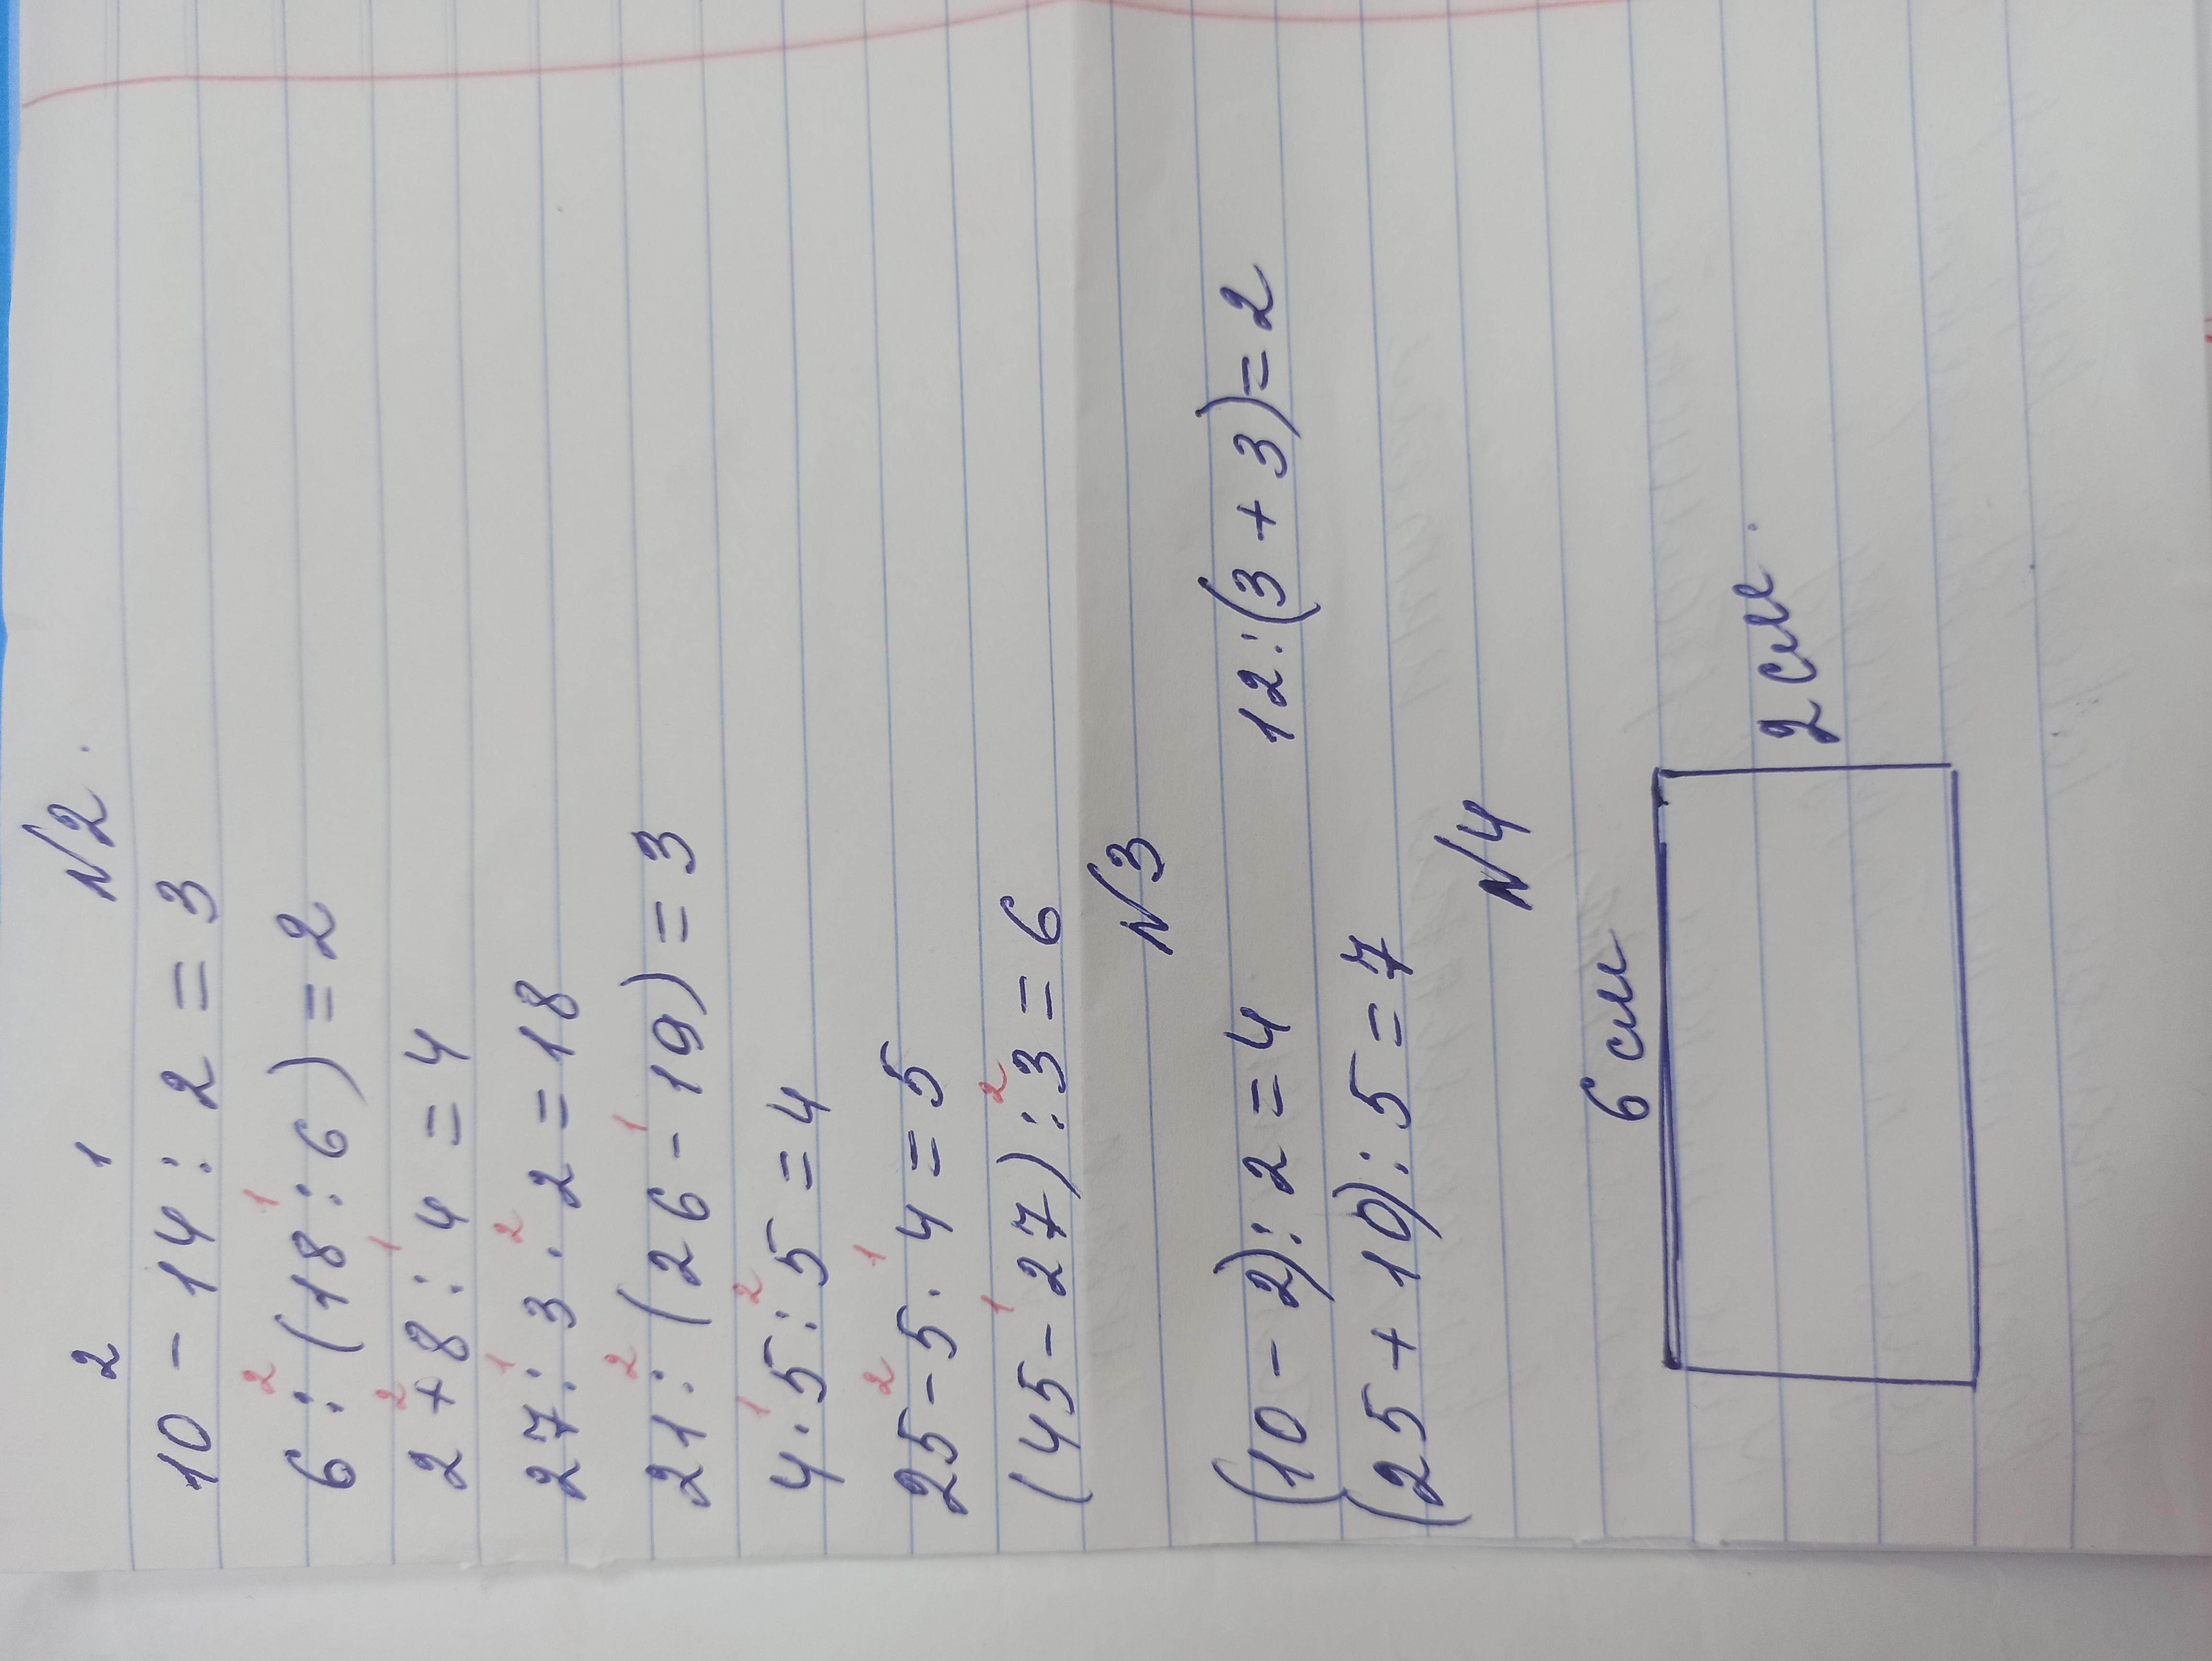 №2.
2 1
10 - 14 : 2 = 3
2 1
6 : (18 : 6) = 2
2 1
2 + 8 : 4 = 4
1 2
27 : 3 · 2 = 18
2 1
21 : (26 - 19) = 3
1 2
4 · 5 : 5 = 4
2 1
25 - 5 · 4 = 5
1 2
(45 - 27) : 3 = 6
№3
(10 - 2) : 2 = 4 12 : (3 + 3) = 2
(25 + 10) : 5 = 7
№4
6 см
2 см.